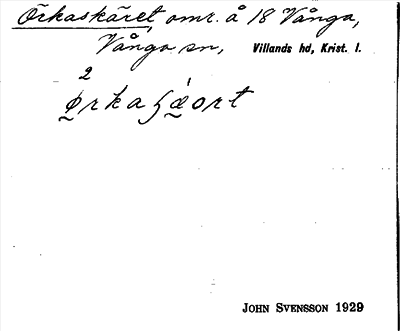 Örkaskäret, omr. å 18 Vånga,
Vånga sn, Villands hd, Krist. l.
2
ørkaʃǽort
JOHN SVENSSON 1929